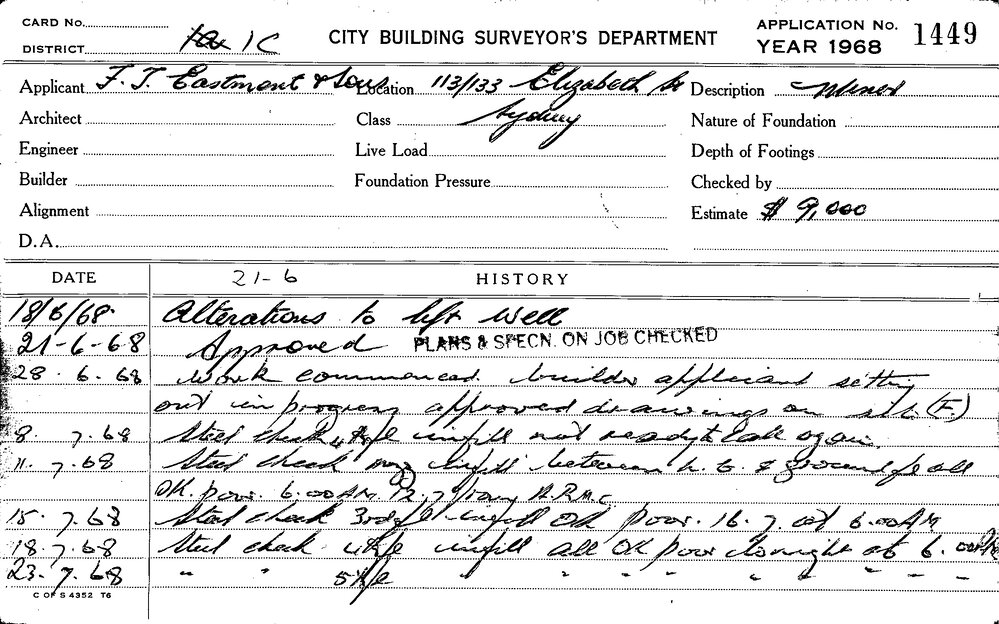 CARD No.
DISTRICT 1C
CITY BUILDING SURVEYOR'S DEPARTMENT
APPLICATION No. 1449
YEAR 1968
Applicant F. T. Eastment & Sons
Location 113/133 Elizabeth St
Sydney
Description Minor
Architect
Class
Nature of Foundation
Engineer
Live Load
Depth of Footings
Builder
Foundation Pressure
Checked by
Alignment
Estimate $ 9,000
D.A.
DATE 21-6 HISTORY
18/6/68 Alterations to lift well
21-6-68 Approved PLANS & SPECN. ON JOB CHECKED
28. 6. 68 work commenced. builder applicant setting
out in progress approved drawings on site (F.)
8. 7. 68 Steel check infill not ready to call again
11. 7. 68 Steel check infill between & ground fl all
OK. pour. 6.00AM
15. 7. 68 Steel check 3rd fl infill OK pour. 16. 7. at 6.00AM
18. 7. 68 Steel check 4th fl infill all OK pour tonight at 6.00PM
23. 7. 68 " " 5th fl " " " " " " "
C OF S 4352 T6